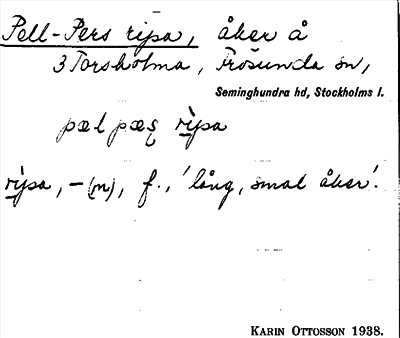 Pell-Pers ripa, åker å
3 Torsholma, Frösunda sn,
Seminghundra hd, Stockholms l.
pæl pæș rìpa
rìpa, -(n), f., 'lång, smal åker'.
KARIN OTTOSSON 1938.